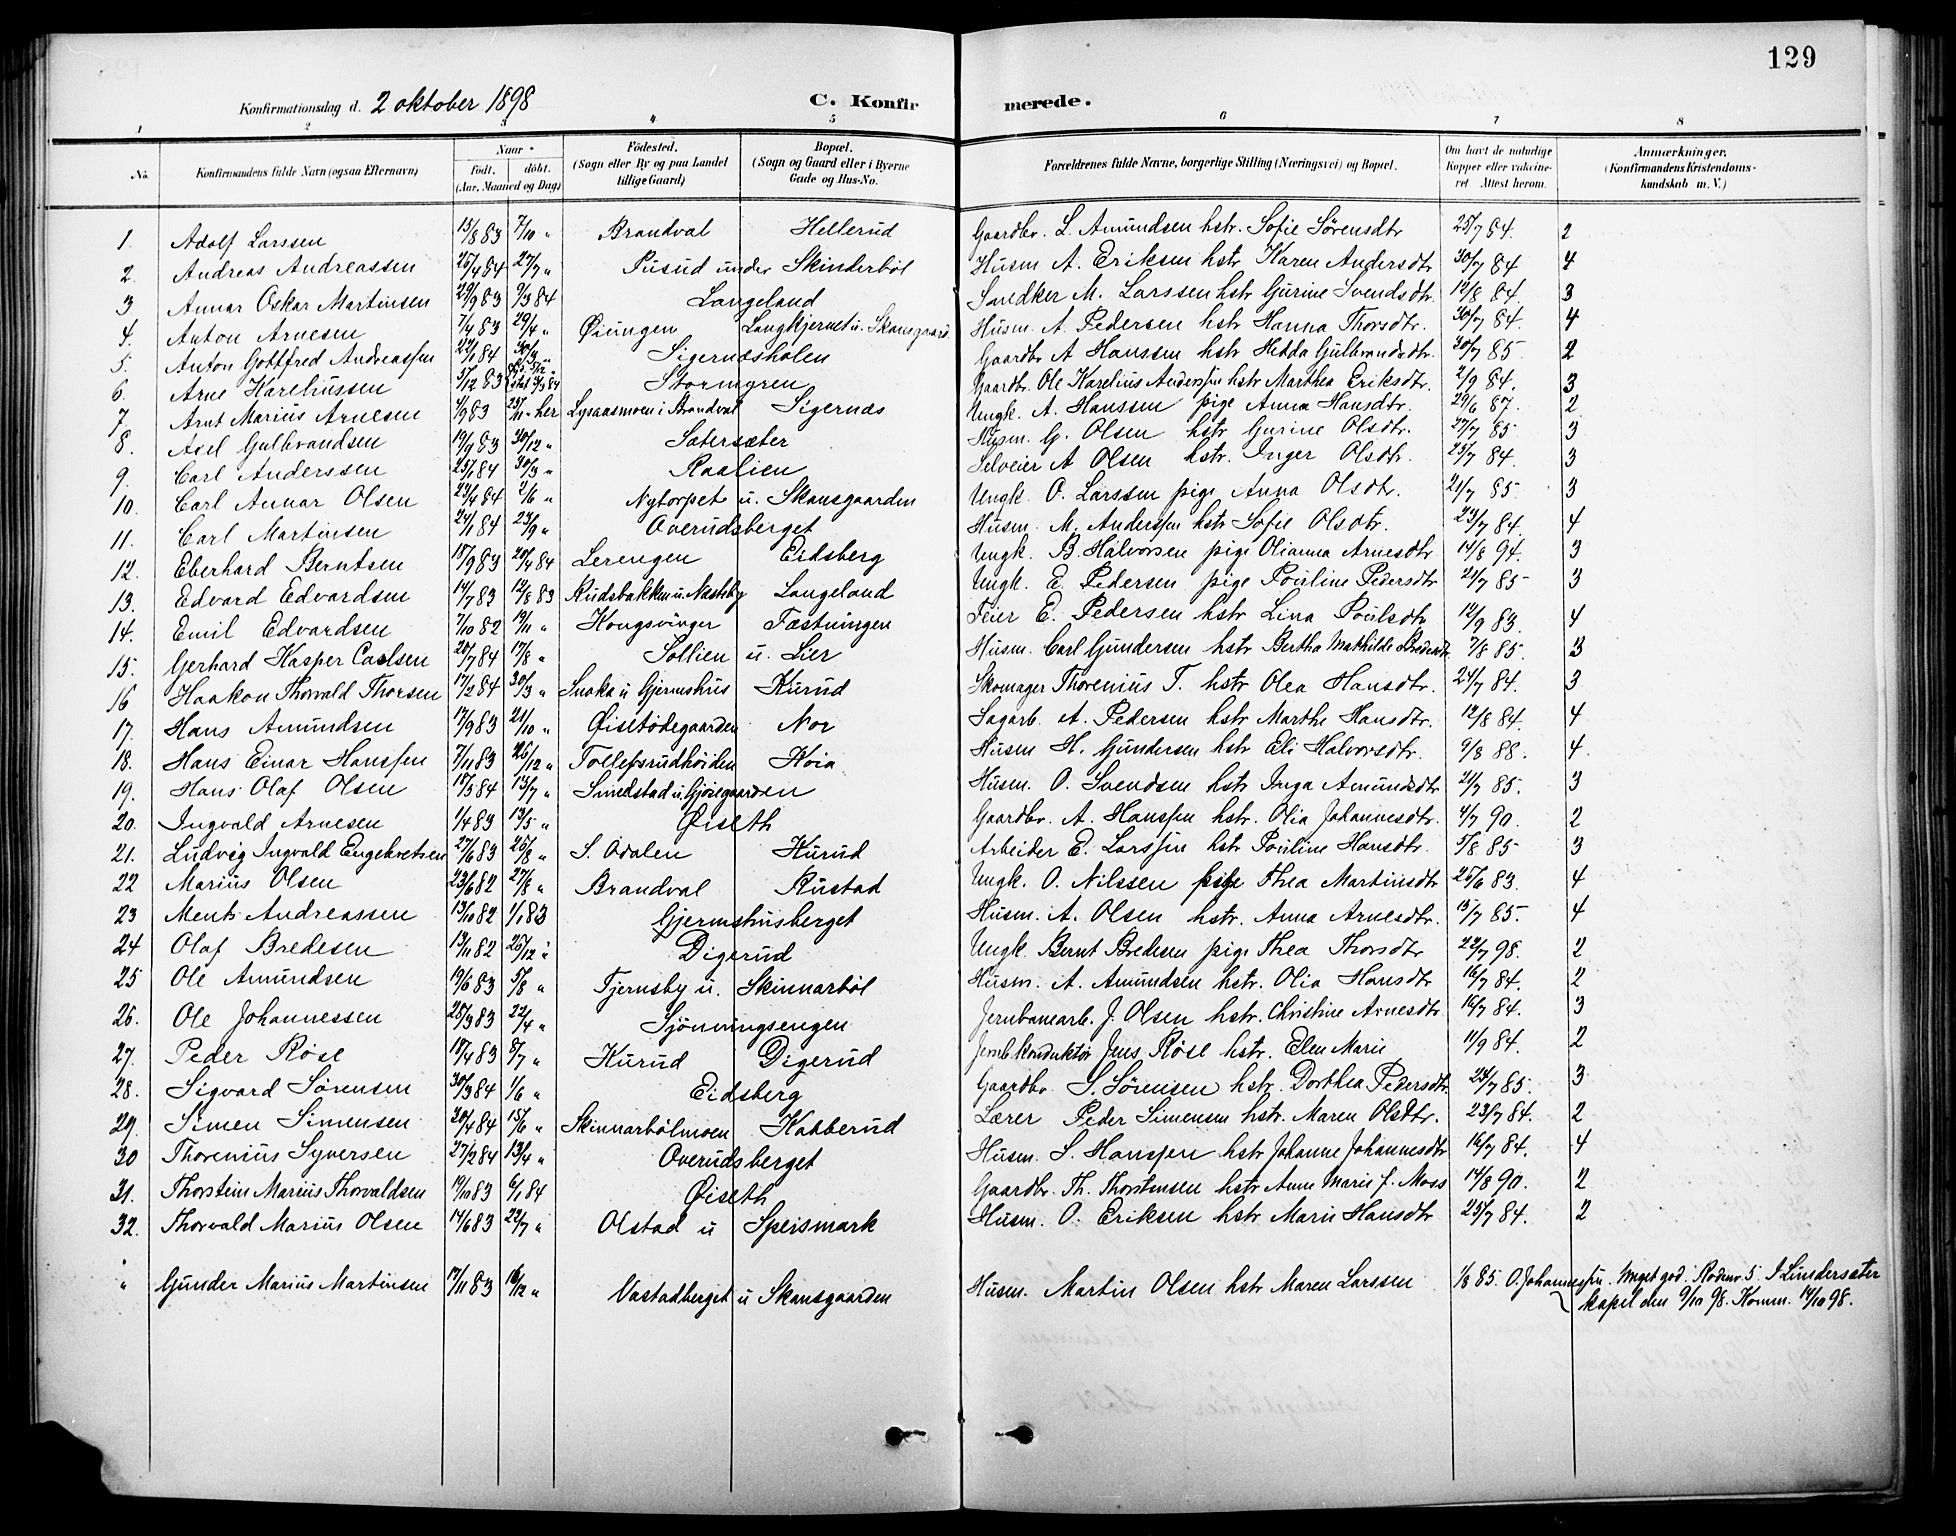 129
Konfirmationsdag d. 2 oktober 1898 C. Konfirmerede.
1 2 3 4 5 6 7 8
No. Konfirmandens fulde Navn (ogsaa Efternavn) Naar født. døbt. (Aar, Maaned og Dag) Fødested. (Sogn eller By og paa Landet tillige Gaard) Bopæl. (Sogn og Gaard eller i Byerne Gade og Hus-No. Forældrenes fulde Navne, borgerlige Stilling (Næringsvei) og Bopæl. Om havt de naturlige Kopper eller vaccineret Attest herom. Anmærkninger, (Konfirmandens Kristendomskundskab m. V.)
1. Adolf Larssen 15/8 83 7/10 " Brandval Hellerud Gaardbr. L. Amundsen hstr. Sofie Sörensdtr 25/7 84. 2
2. Andreas Andreassen 25/4 84 27/7 " Pusud under Skinderböl Husm A. Eriksen hstr Karen Andersdtr 30/7 84 4
3 Annar Oskar Martinsen 29/9 83 9/3 84 Langeland Snedker M. Larssen hstr Gurine Svendsdtr. 12/8 84. 3
4. Anton Arnesen 7/4 83 29/4 " Øiungen Langkjernet u. Skansgaard Husm. A. Pedersen hstr Hanna Thorsdtr. 30/7 84. 4
5. Anton Gottfred Andreassen 22/1 84 30/3 " Sigernæsholen Gaardbr A Hanssen hstr Hedda Gulbrandsdtr. 30/7 85. 2
6. Arne Kareliussen 5/12 83 Stormyren Gaardbr. Ole Karelius Anderssen hstr Marthea Eriksdtr. 2/9 84. 3
7. Arnt Marius Arnesen 4/9 83 25/11 " her Lysaasmoen i Brandval Sigernæs Ungk. A. Hanssen pige Anna Hansdtr. 29/6 87. 2
8. Axel Gulbrandsen 19/9 83 30/12 " Satersæter Husm. G. Olsen hstr Gurine Olsdtr. 27/7 85. 3
9. Carl Anderssen 25/1 84 30/3 " Raalien Selveier A Olsen hstr. Inger Olsdtr. 25/7 84. 3
10. Carl Annar Olsen 24/4 84 2/6 " Nytorpet u. Skansgaarden Ungk. O. Larssen pige Anna Olsdtr. 21/7 85. 3
11. Carl Martinsen 24/1 84 23/9 " Overudsberget Husm. M. Anderssen hstr Sofie Olsdtr. 23/7 84. 4
12. Eberhard Berntsen 18/9 83 20/4 84 Lerengen Eidsberg Ungk. B. Halvorsen pige Olianna Arnesdtr 14/8 94. 3
13. Edvard Edvardsen 14/7 83 12/8 83 Rudsbakken u. Næstby Langeland Ungk. E. Pedersen pige Pouline Pedersdtr 21/7 85 3
14. Emil Edvardsen 7/10 82 19/11 " Kongsvinger Fæstningen Feier E. Pedersen hstr Lina Poulsdtr 12/9 83. 4
15. Gerhard Kasper Carlsen 20/7 84 17/8 " Sollien u. Lier Husm. Carl Gundersen hstr Bertha Mathilde Bredesdtr 7/8 85. 3
16 Haakon Thorvald Thorsen 17/2 84 30/3 " Snoka u Gjermshus Kurud Skomager Thorenius T. hstr Olea Hansdtr. 24/7 84. 3
17. Hans Amundsen 17/9 83 21/10 " Øisetödegaarden Nor Sagarb. A. Pedersen hstr Marthe Hansdtr. 12/8 84. 4
18. Hans Einar Hanssen 7/11 83 26/12 " Tollefsrudhöiden Koia Husm H. Gundersen hstr Eli Halvorsdtr. 9/8 88. 4.
19. Hans Olaf Olsen 18/3 84 13/7 " Smedstad u. Gjösegaarden Husm. O. Svendsen hstr Inga Amundsdtr 21/7 85. 3
20. Ingvald Arnesen 1/4 83 13/5 " Øiseth Gaardbr. A. Hanssen hstr. Olia Johannesdtr. 4/7 90. 2
21. Ludvig Ingvald Engebretsen 27/6 83 26/8 " S. Odalen Kurud Arbeider E. Larssen hstr Pouline Hansdtr. 5/8 85 3
22 Marius Olsen 23/6 82 27/8 " Brandval Rustad Ungk. O. Nilssen pige Thea Martinsdtr 25/6 83. 4
23 Ments Andreassen 13/10 82 1/1 83 Gjermshusberget Husm. A. Olsen hstr. Anna Arnesdtr. 15/7 85. 4
24 Olaf Bredesen 13/11 82 26/12 " Digerud Ungk. Bernt Bredesen pige Thea Thorsdtr 22/7 98. 2
25 Ole Amundsen 19/6 83 5/8 " Tjernsby u. Skinnarböl Husm. A. Amundsen hstr. Olia Hansdtr 16/7 84. 2
26. Ole Johannessen 25/3 83 22/4 " Sjönningsengen Jernbanearb. J. Olsen hstr. Christine Arnesdtr 16/7 84. 3
27. Peder Röse 18/4 83 8/7 " Kurud Digerud Jernb. konduktör Jens Röse hstr. Elen Marie 11/9 84. 2
28. Sigvard Sörensen 30/3 84 1/6 " Eidsberg Gaardbr. S. Sörensen hstr. Dorthea Pedersdtr. 24/7 85. 3
29. Simen Simensen 20/4 84 15/6 " Skinnarbölmoen Kabberud Lærer Peder Simensen hstr. Maren Olsdtr. 23/7 84. 2
30 Thorenius Syversen 27/2 84 13/4 " Overudsberget Husm. S. Hanssen hstr Johanne Johannesdtr 16/7 84. 4
31. Thorstein Marius Thorvaldsen 19/10 83 6/1 84 Øiseth Gaardbr. Th. Thorstensen hstr Anne Marie f. Moss 14/8 90. 2
32. Thorvald Marius Olsen 14/6 83 22/7 " Olstad u Speismark Husm. O. Eriksen hstr Marie Hansdtr 25/7 84. 2
" Gunder Marius Martinsen 17/11 83 16/12 " Vastadberget u Skansgaarden Husm. Martin Olsen hstr Maren Larssen 1/8 85. O. Johannessen. Meget god. Rodenv. 5. I Lindersæter
kapel den 9/10 98. Komm. 14/10 98.